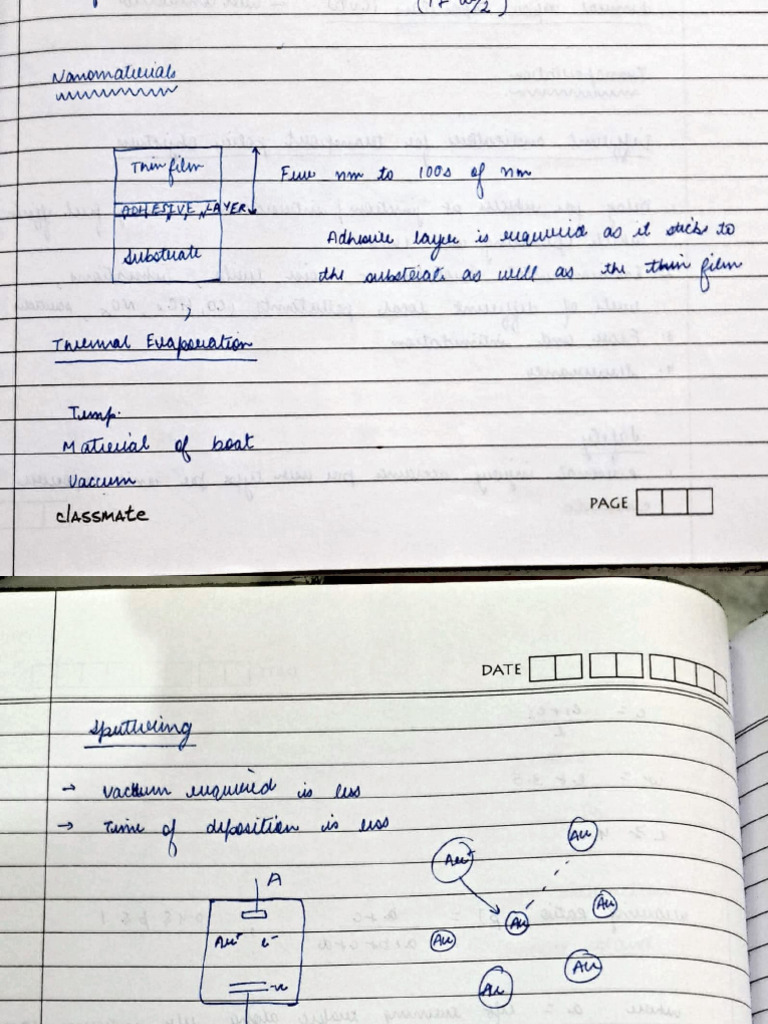 Nanomaterials
Thin film
Few nm to 100s of nm
ADHESIVE LAYER
Adhesive layer is required as it sticks to
Substrate
the substrate as well as the thin film
Thermal Evaporation
Temp.
Material of boat
Vaccum
classmate
PAGE
DATE
Sputtering
→ vaccum required is less
→ Time of deposition is less
A
Au
Au+
Au
Au
Au+ e-
Au
Au
Au